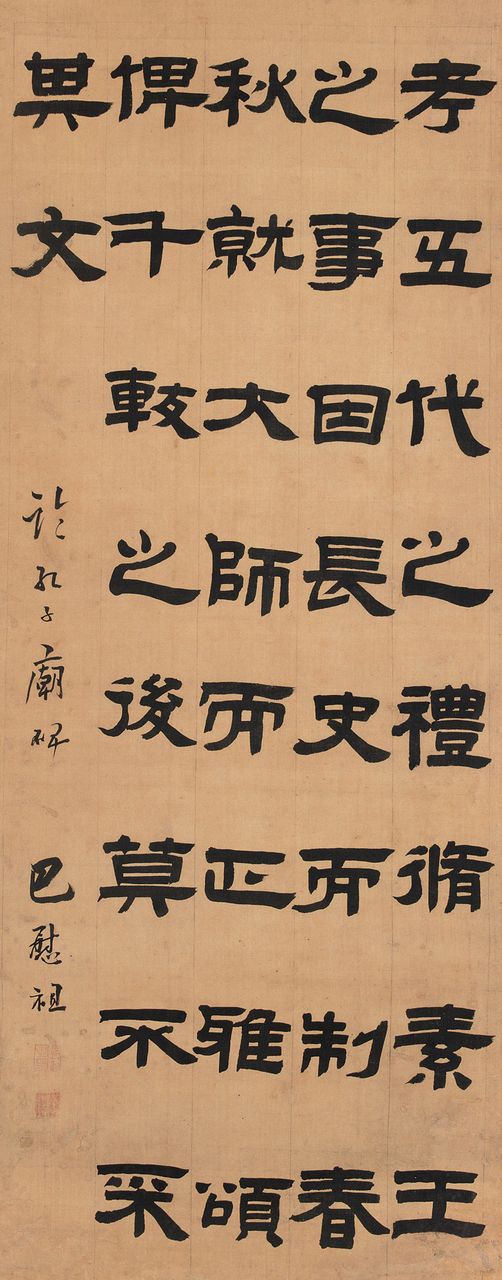 考五代之禮脩素王
之事因長史而制春
秋就大師而正雅頌
俾千載之後莫不采
其文
臨孔子廟碑 巴慰祖